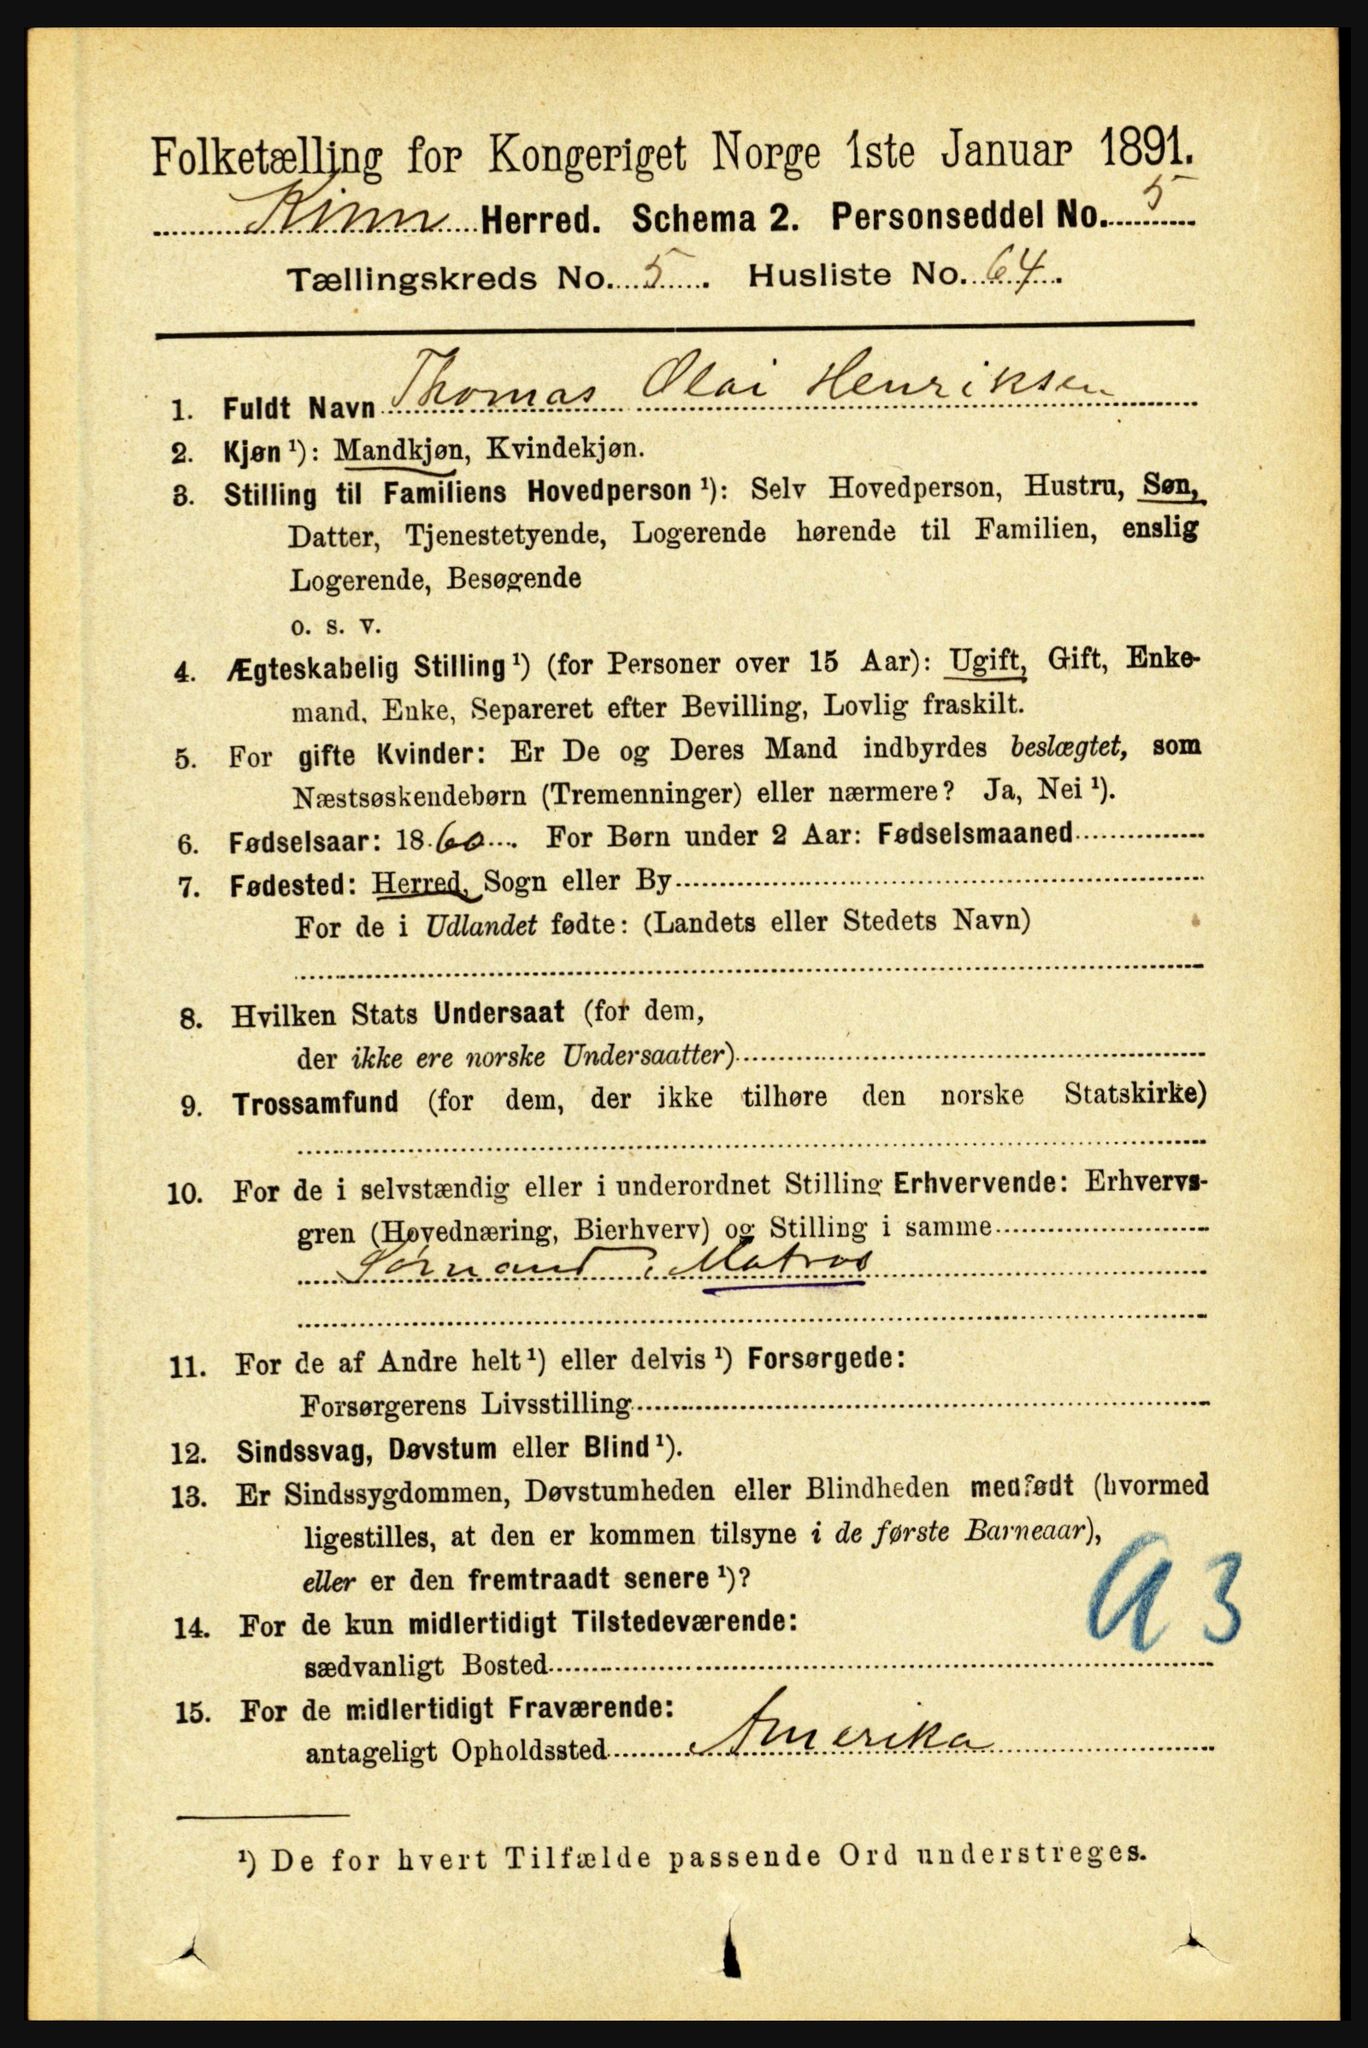 Folketælling for Kongeriget Norge 1ste Januar 1891.
Kinn Herred. Schema 2. Personseddel No. 5
Tællingskreds No. 5. Husliste No. 64.
1. Fuldt Navn Thomas Olai Henriksen
2. Kjøn ¹): Mandkjøn, Kvindekjøn.
3. Stilling til Familiens Hovedperson ¹): Selv Hovedperson, Hustru, Søn,
Datter, Tjenestetyende, Logerende hørende til Familien, enslig
Logerende, Besøgende
o. s. v.
4. Ægteskabelig Stilling ¹) (for Personer over 15 Aar): Ugift, Gift, Enke-
mand, Enke, Separeret efter Bevilling, Lovlig fraskilt.
5. For gifte Kvinder: Er De og Deres Mand indbyrdes beslægtet, som
Næstsøskendebørn (Tremenninger) eller nærmere? Ja, Nei ¹).
6. Fødselsaar: 1860. For Børn under 2 Aar: Fødselsmaaned
7. Fødested: Herred, Sogn eller By
For de i Udlandet fødte: (Landets eller Stedets Navn)
8. Hvilken Stats Undersaat (for dem,
der ikke ere norske Undersaatter)
9. Trossamfund (for dem, der ikke tilhøre den norske Statskirke)
10. For de i selvstændig eller i underordnet Stilling Erhvervende: Erhvervs-
gren (Hovednæring, Bierhverv) og Stilling i samme
Sømand, Matros
11. For de af Andre helt ¹) eller delvis ¹) Forsørgede:
Forsørgerens Livsstilling
12. Sindssvag, Døvstum eller Blind ¹).
13. Er Sindssygdommen, Døvstumheden eller Blindheden medfødt (hvormed
ligestilles, at den er kommen tilsyne i de første Barneaar),
eller er den fremtraadt senere ¹)?
a3
14. For de kun midlertidigt Tilstedeværende:
sædvanligt Bosted
15. For de midlertidigt Fraværende:
antageligt Opholdssted Amerika
¹) De for hvert Tilfælde passende Ord understreges.